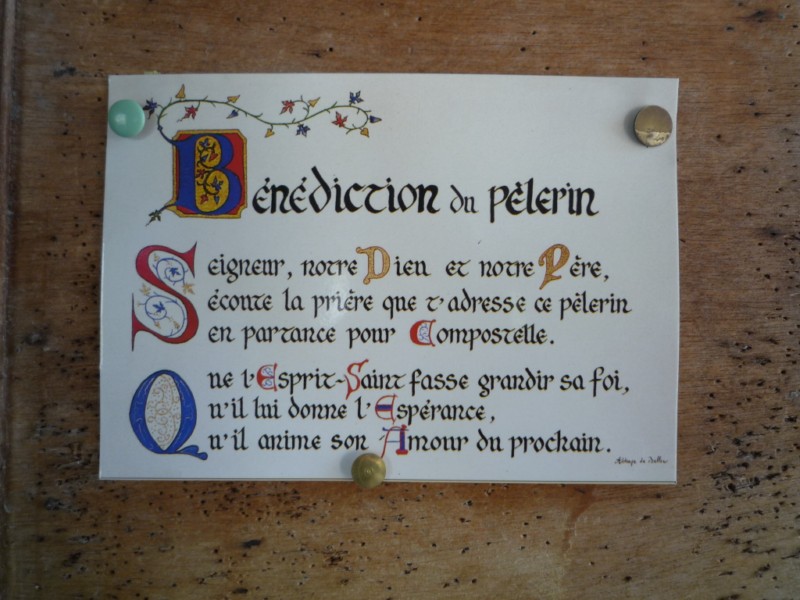 Bénédiction du pèlerin
Seigneur, notre Dieu et notre Père,
écoute la prière que t'adresse ce pèlerin
en partance pour Compostelle.
Que l'Esprit-Saint fasse grandir sa foi,
Qu'il lui donne l'Espérance,
Qu'il anime son Amour du prochain.
Abbaye de